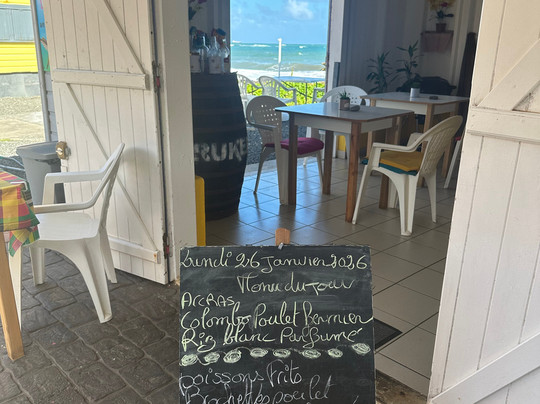 RUKE
Lundi 26 Janvier 2026
Menu du Jour
Accras
Colombo Poulet
Riz blanc Parfumé
poissons frits
Brochettes poulet